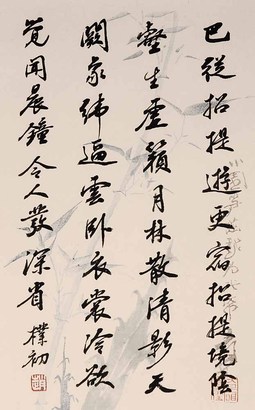 已從招提遊更宿招提境陰
壑生虛籟月林散清影天
闕象緯逼雲臥衣裳冷欲
覺聞晨鐘令人發深省 樸初